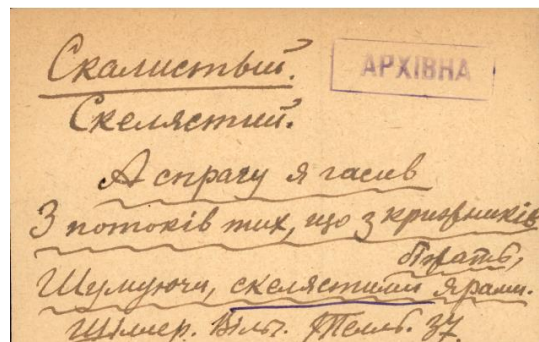 Скалистый.
АРХІВНА
Скелястий.
А спрагу я гасив
З потоків тих, що з крижників
біжать,
Шумуючи, скелястими ярами.
Шіллер. Вільг. Телль. 37.